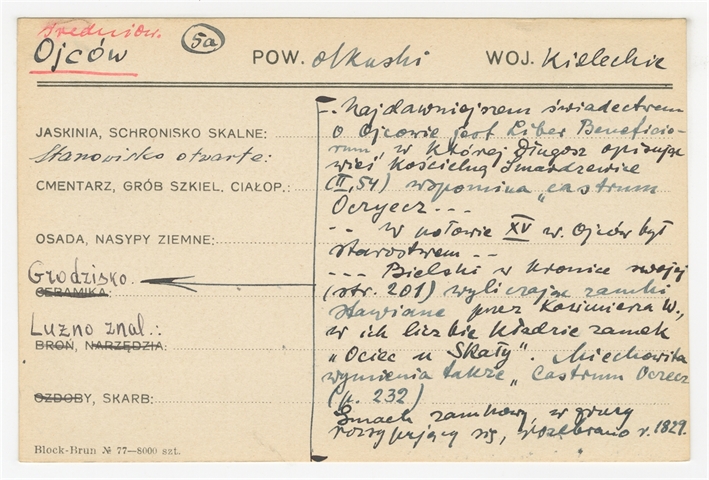 Średniow.
Ojców
5a
POW. olkuski
WOJ. Kieleckie
JASKINIA, SCHRONISKO SKALNE:
Stanowisko otwarte:
CMENTARZ, GRÓB SZKIEL. CIAŁOP.:
OSADA, NASYPY ZIEMNE:
Grodzisko.
CERAMIKA:
Luźno znal.:
BROŃ, NARZĘDZIA:
OZDOBY, SKARB:
Block-Brun № 77—8000 szt.
-. Najdawniejszem świadectwem
o Ojcowie jest Liber Beneficio-
rum, w której Długosz opisując
wieś kościelną Smardzewice
(II, 54) wspomina „castrum
Oczyecz - - -
-- W połowie XV w. Ojców był
starostwem --
--- Bielski w kronice swojej
(str. 201) wyliczając zamki
stawiane przez Kazimierza W.,
w ich liczbie kładzie zamek
„Ociec u Skały". Miechowita
wymienia także „Castrum Oczecz
(p. 232)
Gmach zamkowy, w gruzy
rozsypujący się, rozebrano r. 1829.